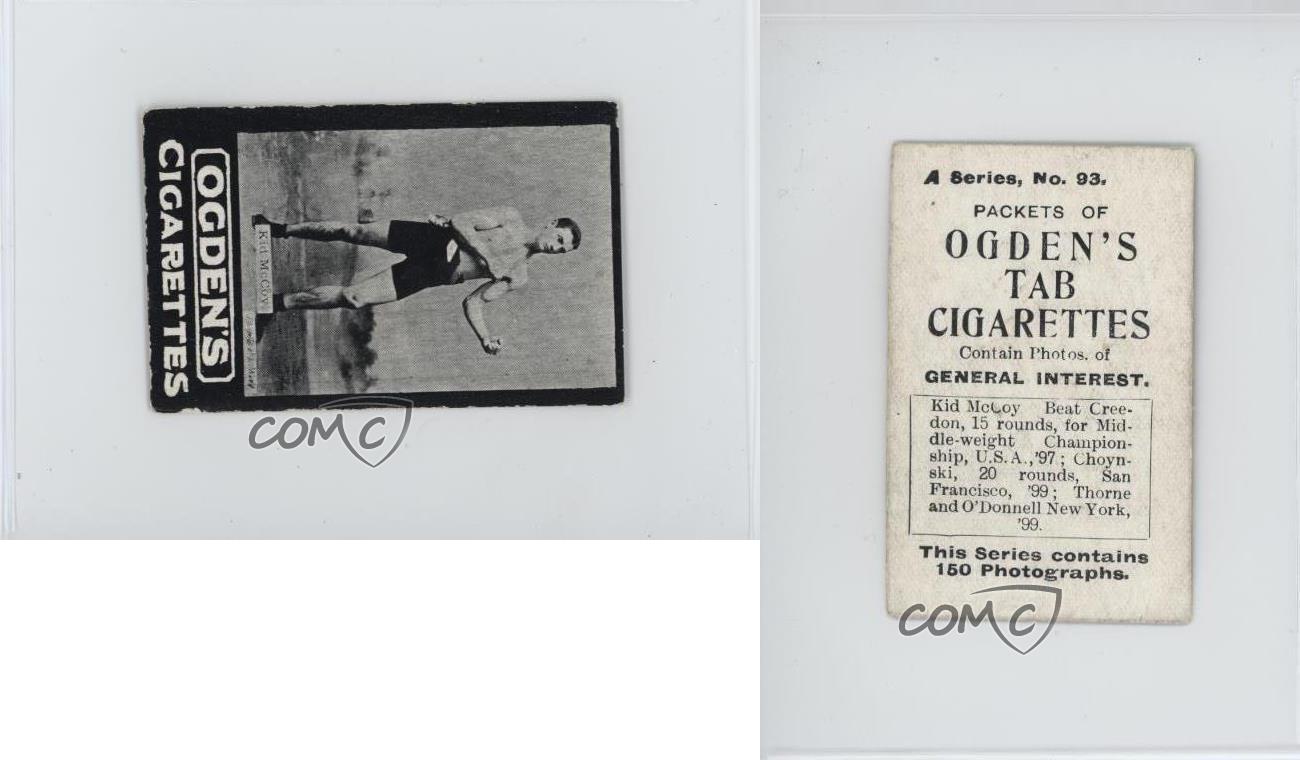 OGDEN'S
CIGARETTES
Kid McCoy
COMC
A Series, No. 93.
PACKETS OF
OGDEN'S
TAB
CIGARETTES
Contain Photos. of
GENERAL INTEREST.
Kid McCoy Beat Cree-
don, 15 rounds, for Mid-
dle-weight Champion-
ship, U.S.A.,'97; Choyn-
ski, 20 rounds, San
Francisco, '99; Thorne
and O'Donnell New York,
'99.
This Series contains
150 Photographs.
COMC